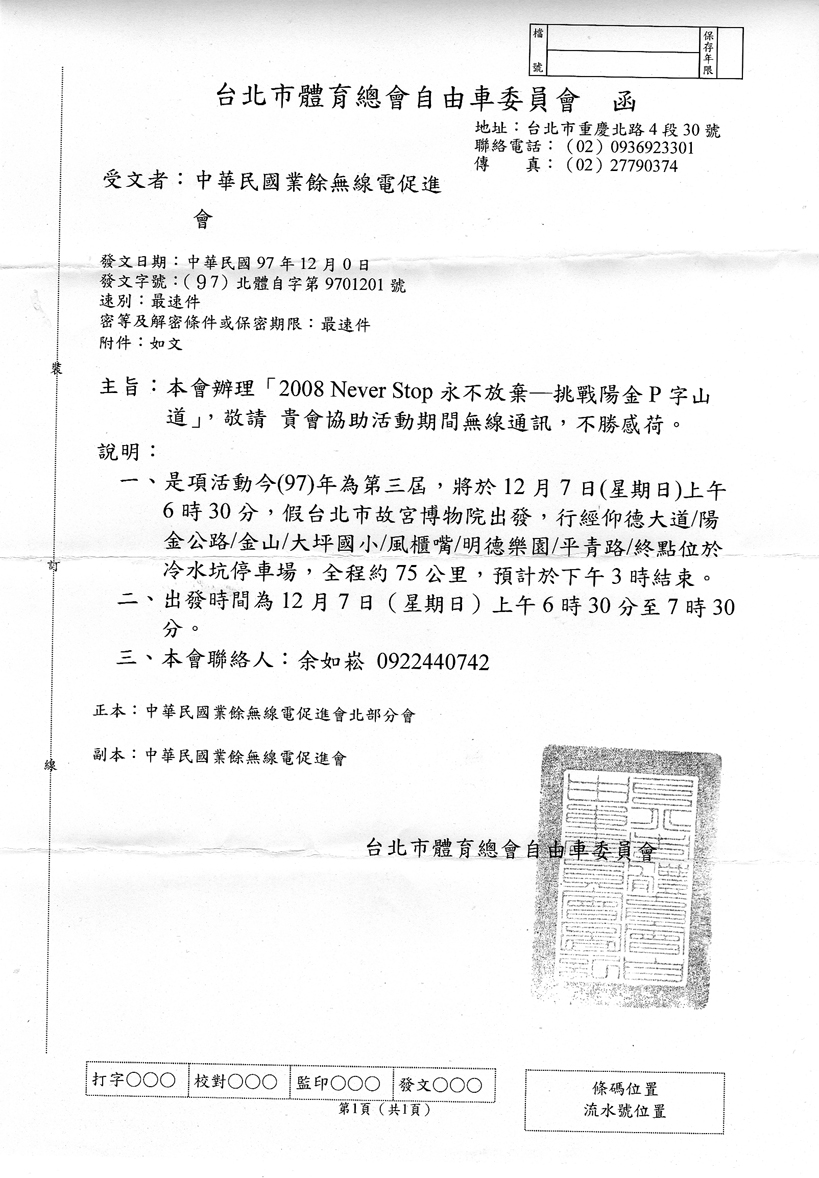 檔號
保存年限
台北市體育總會自由車委員會 函
地址：台北市重慶北路4段30號
聯絡電話：（02）0936923301
傳 真：（02）27790374
受文者：中華民國業餘無線電促進
會
發文日期：中華民國97年12月0日
發文字號：(９7）北體自字第9701201號
速別：最速件
密等及解密條件或保密期限：最速件
附件：如文
主旨：本會辦理「2008 Never Stop 永不放棄—挑戰陽金P字山
道」，敬請 貴會協助活動期間無線通訊，不勝感荷。
說明：
一、是項活動今(97)年為第三屆，將於12月7日(星期日)上午
6時30分，假台北市故宮博物院出發，行經仰德大道/陽
金公路/金山/大坪國小/風櫃嘴/明德樂園/平青路/終點位於
冷水坑停車場，全程約75公里，預計於下午3時結束。
二、出發時間為12月7日（星期日）上午6時30分至7時30
分。
三、本會聯絡人：余如崧 0922440742
正本：中華民國業餘無線電促進會北部分會
副本：中華民國業餘無線電促進會
台北市體育總會自由車委員會
裝
訂
線
打字○○○ 校對○○○ 監印○○○ 發文○○○
第1頁（共1頁）
條碼位置
流水號位置